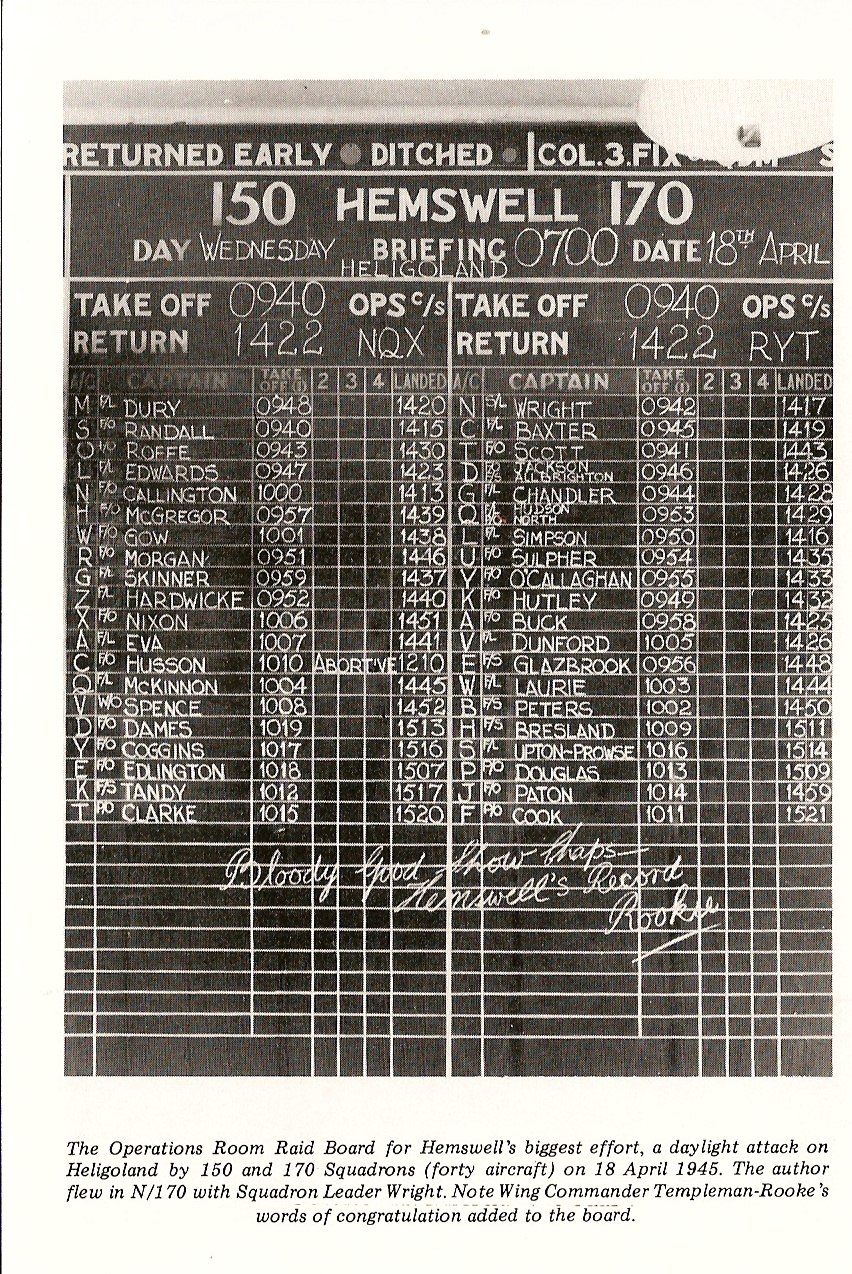 RETURNED EARLY DITCHED COL.3.FIX
150 HEMSWELL 170
DAY WEDNESDAY BRIEFING 0700 DATE 18TH APRIL
HELIGOLAND
TAKE OFF 0940 OPS C/S TAKE OFF 0940 OPS C/S
RETURN 1422 NQX RETURN 1422 RYT
A/C CAPTAIN TAKE OFF (1) 2 3 4 LANDED A/C CAPTAIN TAKE OFF (1) 2 3 4 LANDED
M F/L DURY 0948 1420 N S/L WRIGHT 0942 1417
S F/O RANDALL 0940 1415 C F/L BAXTER 0945 1419
O F/O ROFFE 0943 1430 T F/O SCOTT 0941 1443
L F/L EDWARDS 0947 1423 D JACKSON ALLBRIGHTON 0946 1426
N F/O CALLINGTON 1000 1413 G F/L CHANDLER 0944 1428
H F/O McGREGOR 0957 1439 Q HUDSON NORTH 0953 1429
W F/O GOW 1001 1438 L F/L SIMPSON 0950 1416
R F/O MORGAN 0951 1446 U F/O SULPHER 0954 1435
G F/L SKINNER 0959 1437 Y F/O O'CALLAGHAN 0955 1433
Z F/L HARDWICKE 0952 1440 K F/O HUTLEY 0949 1432
X F/O NIXON 1006 1451 A F/O BUCK 0958 1425
A F/L EVA 1007 1441 V F/L DUNFORD 1005 1426
C F/O HUSSON 1010 ABORTIVE 1210 E F/S GLAZBROOK 0956 1448
Q F/L McKINNON 1004 1445 W F/L LAURIE 1003 1444
V W/O SPENCE 1008 1452 B F/S PETERS 1002 1450
D F/O DAMES 1019 1513 H F/S BRESLAND 1009 1511
Y F/O COGGINS 1017 1516 S F/L UPTON-PROWSE 1016 1514
E F/O EDLINGTON 1018 1507 P DOUGLAS 1013 1509
K F/S TANDY 1012 1517 J F/O PATON 1014 1459
T P/O CLARKE 1015 1520 F COOK 1011 1521
Bloody Good Show Chaps—
Hemswell's Record
Rooke
The Operations Room Raid Board for Hemswell's biggest effort, a daylight attack on
Heligoland by 150 and 170 Squadrons (forty aircraft) on 18 April 1945. The author
flew in N/170 with Squadron Leader Wright. Note Wing Commander Templeman-Rooke's
words of congratulation added to the board.